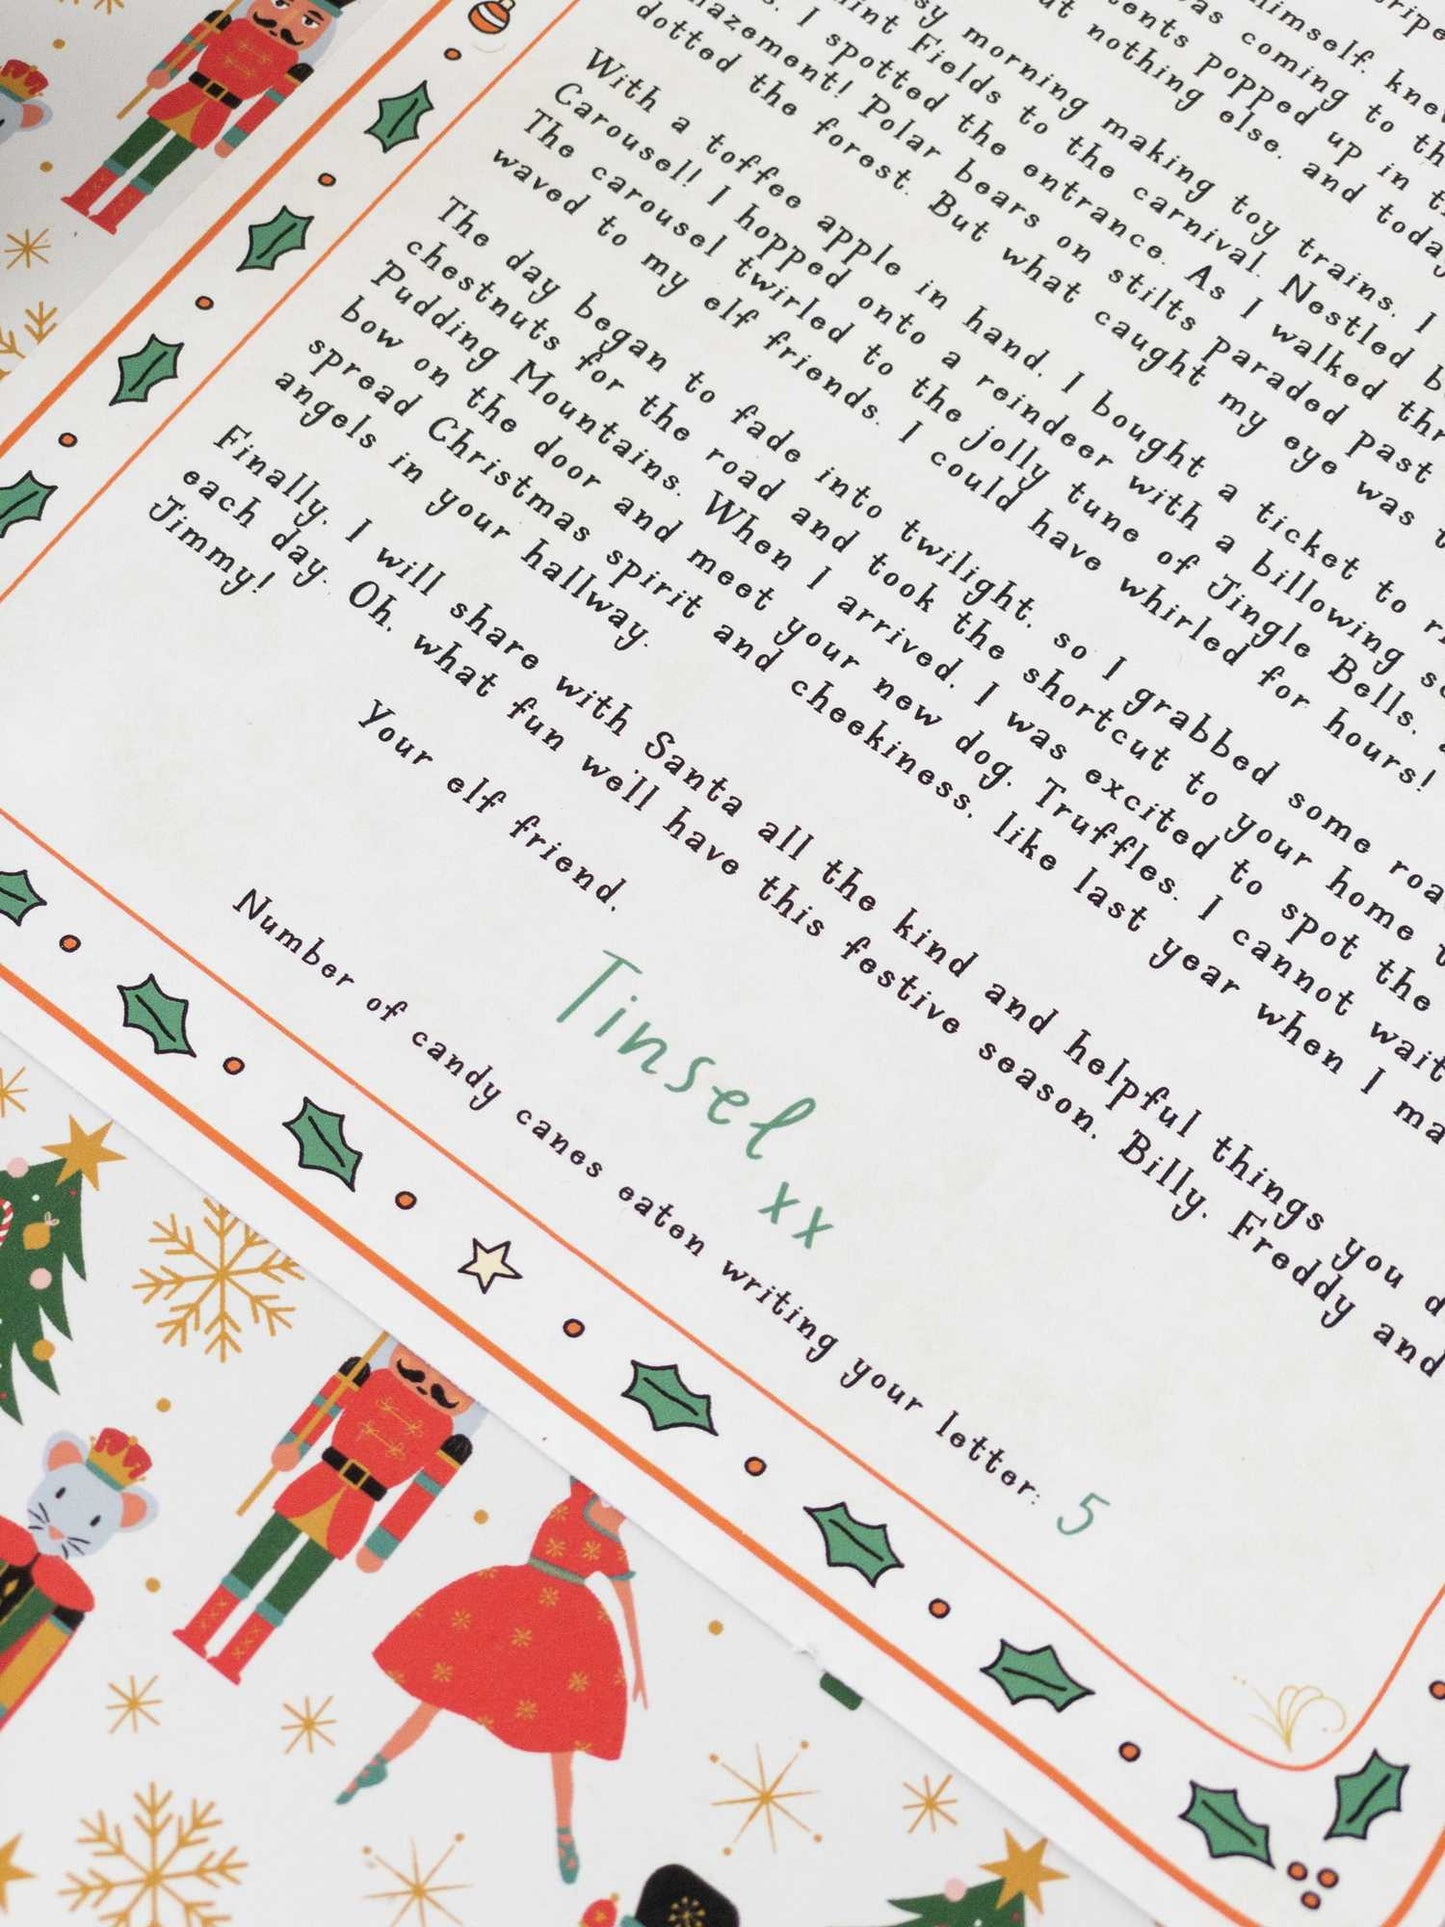 himself, knew
was coming to
popped up in
nothing else, and today
morning making toy trains. I
Fields to the carnival. Nestled
I spotted the entrance. As I walked
Polar bears on stilts paraded past
dotted the forest. But what caught my eye was
With a toffee apple in hand, I bought a ticket to
Carousel! I hopped onto a reindeer with a billowing
The carousel twirled to the jolly tune of Jingle Bells,
waved to my elf friends. I could have whirled for hours!
The day began to fade into twilight, so I grabbed some
chestnuts for the road and took the shortcut to your home
Pudding Mountains. When I arrived, I was excited to spot the
bow on the door and meet your new dog, Truffles. I cannot wait
spread Christmas spirit and cheekiness, like last year when I
angels in your hallway.
Finally, I will share with Santa all the kind and helpful things you
each day. Oh, what fun we'll have this festive season, Billy, Freddy and
Jimmy!
Your elf friend,
Tinsel xx
Number of candy canes eaten writing your letter: 5